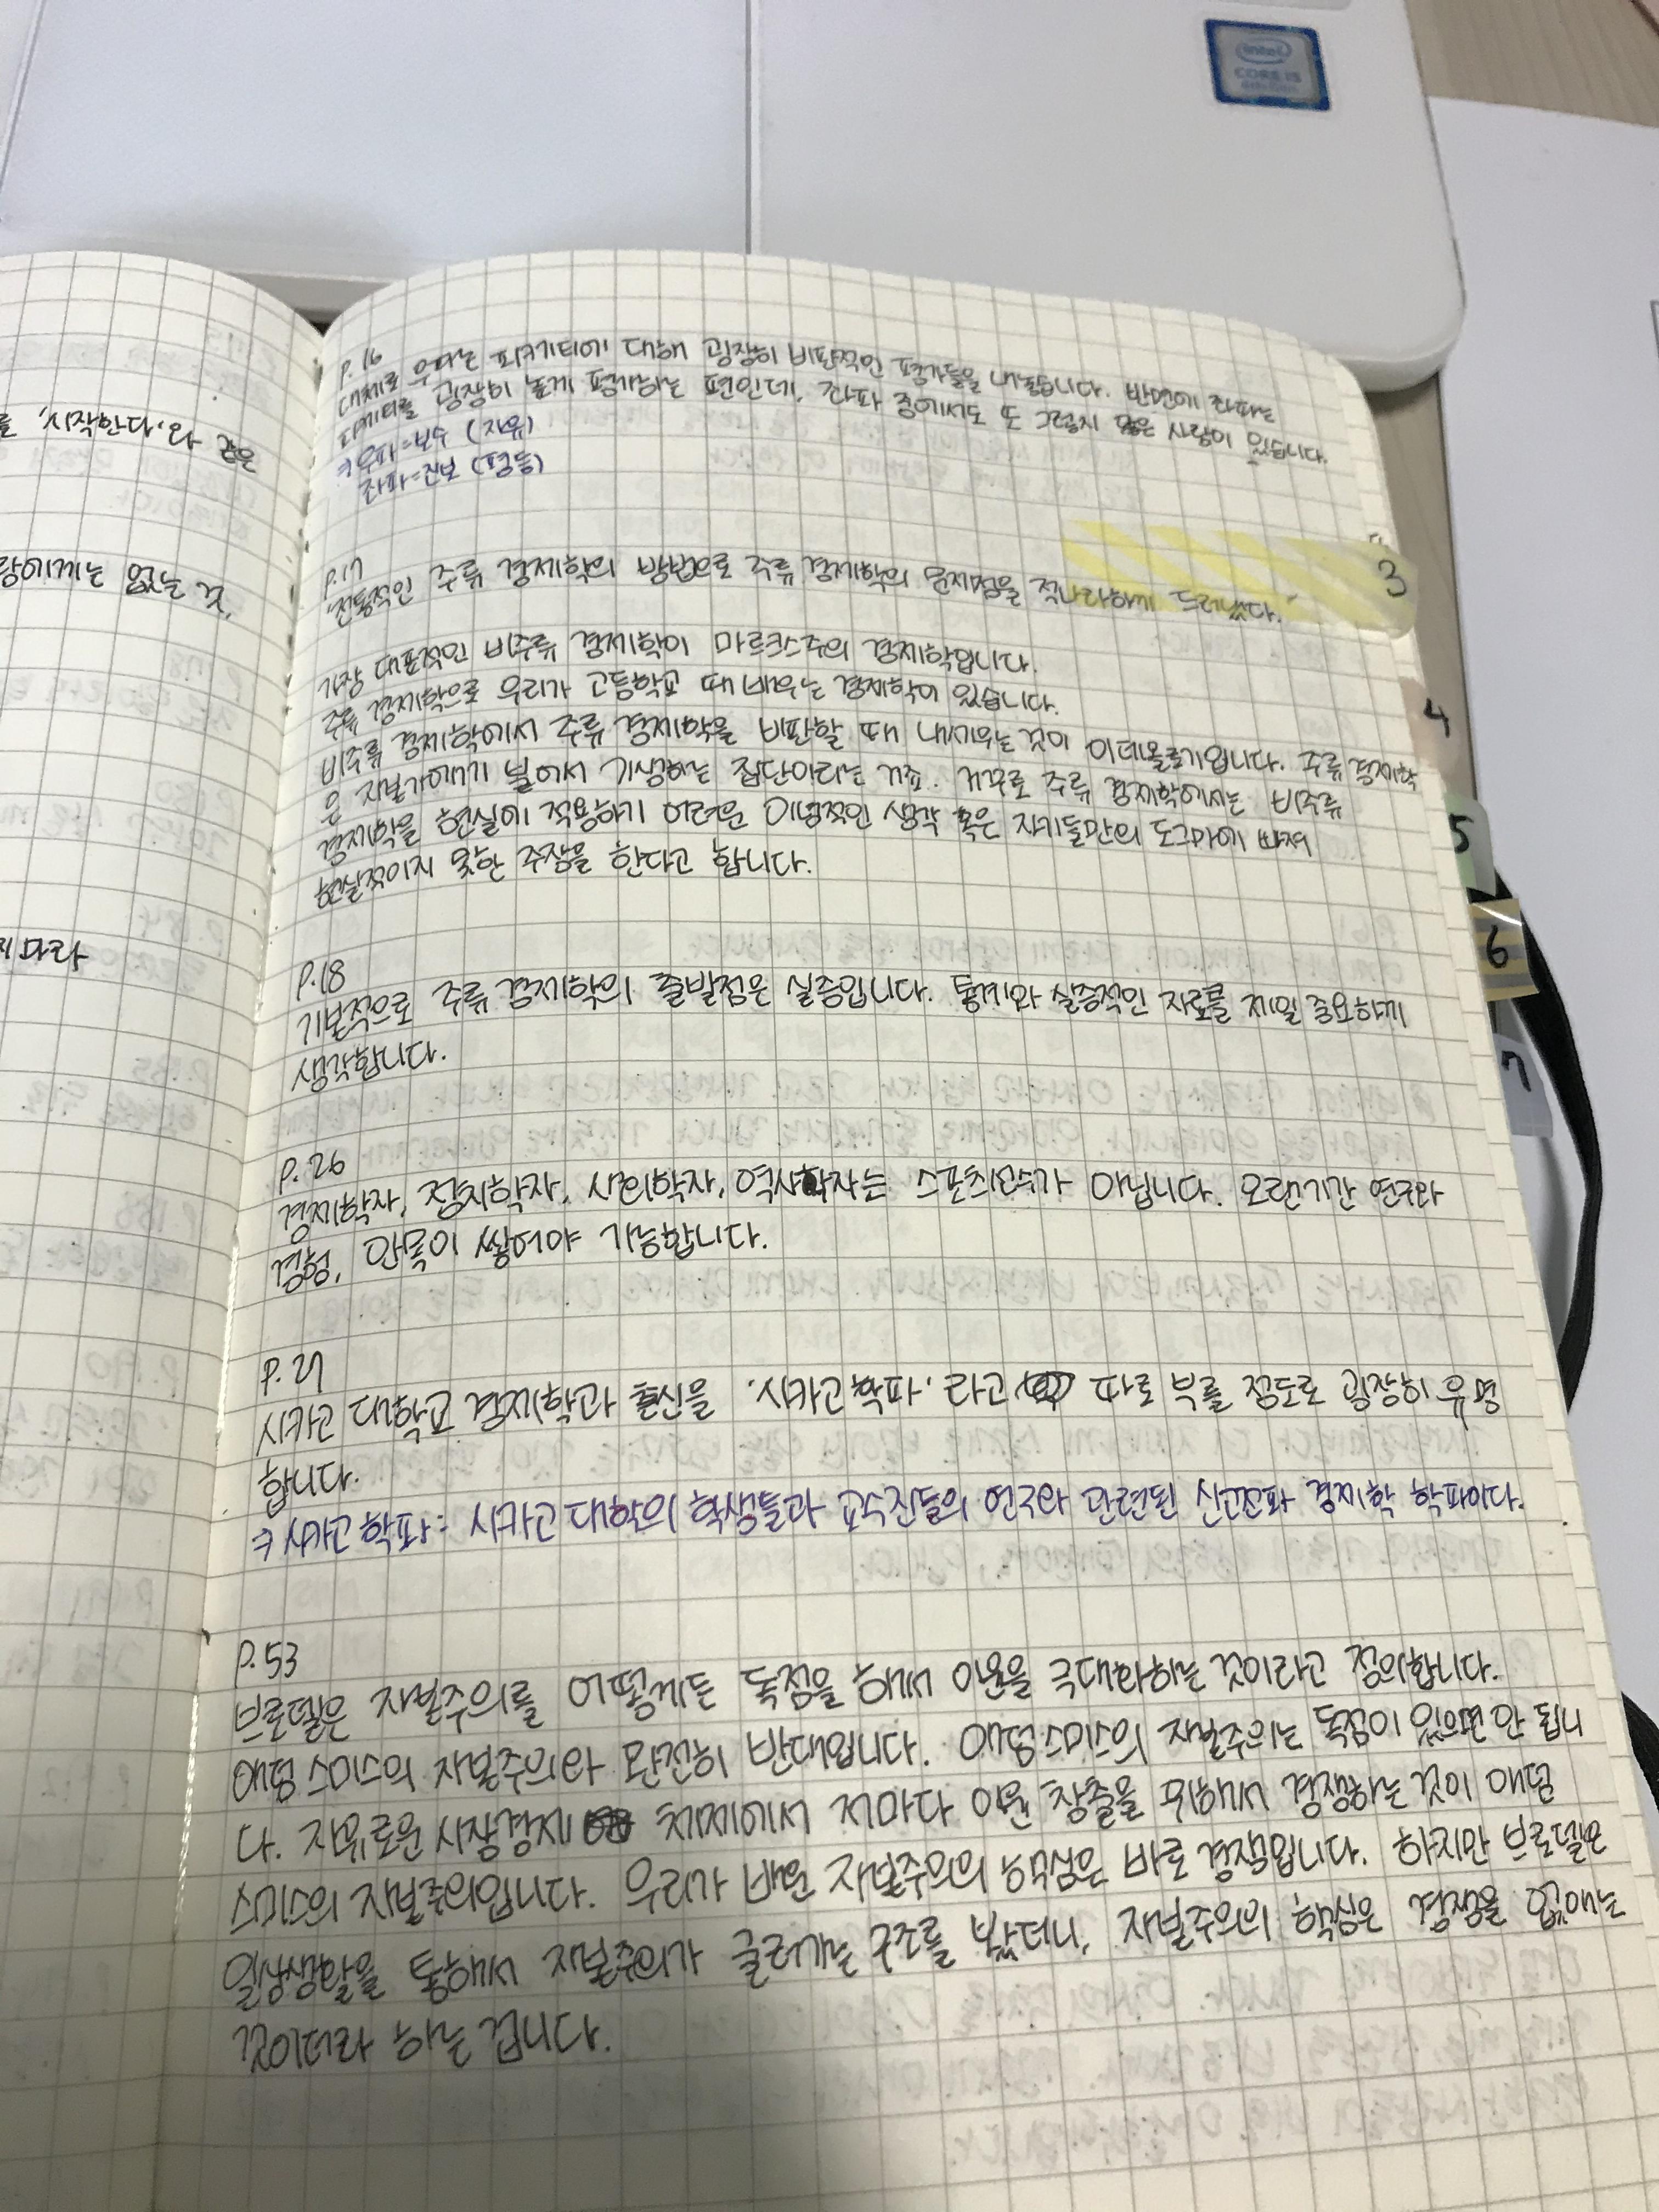 intel
CORE i5
를 '시작한다'와 같은
람에게는 없는 것.
지 마라
P. 16
대체로 우파는 피케티에 대해 굉장히 비판적인 평가들을 내놓습니다. 반면에 좌파는
피케티를 굉장히 높게 평가하는 편인데, 좌파 중에서도 또 그렇지 않은 사람이 있습니다.
→ 우파=보수 (자유)
좌파=진보 (평등)
P.17
"전통적인 주류 경제학의 방법으로 주류 경제학의 문제점을 적나라하게 드러냈다."
가장 대표적인 비주류 경제학이 마르크스주의 경제학입니다.
주류 경제학으로 우리가 고등학교 때 배우는 경제학이 있습니다.
비주류 경제학에서 주류 경제학을 비판할 때 내세우는 것이 이데올로기입니다. 주류 경제학
은 자본가에게 붙어서 기생하는 집단이라는 거죠. 거꾸로 주류 경제학에서는 비주류
경제학을 현실에 적용하기 어려운 이념적인 생각 혹은 자기들만의 도그마에 빠져
현실적이지 못한 주장을 한다고 합니다.
P.18
기본적으로 주류 경제학의 출발점은 실증입니다. 통계와 실증적인 자료를 제일 중요하게
생각합니다.
P. 26
경제학자, 정치학자, 사회학자, 역사학자는 스포츠선수가 아닙니다. 오랜기간 연구와
경험, 안목이 쌓여야 가능합니다.
P. 27
시카고 대학교 경제학과 출신을 '시카고 학파' 라고 따로 부를 정도로 굉장히 유명
합니다.
→ 시카고 학파: 시카고 대학의 학생들과 교수진들의 연구와 관련된 신고전파 경제학 학파이다.
P. 53
브로델은 자본주의를 어떻게든 독점을 해서 이윤을 극대화하는 것이라고 정의합니다.
애덤 스미스의 자본주의와 완전히 반대입니다. 애덤 스미스의 자본주의는 독점이 있으면 안 됩니
다. 자유로운 시장경제 체제에서 저마다 이윤 창출을 위해서 경쟁하는 것이 애덤
스미스의 자본주의입니다. 우리가 배운 자본주의의 핵심은 바로 경쟁입니다. 하지만 브로델은
일상생활을 통해서 자본주의가 굴러가는 구조를 봤더니, 자본주의의 핵심은 경쟁을 없애는
것이더라 하는 겁니다.
3
4
5
6
7